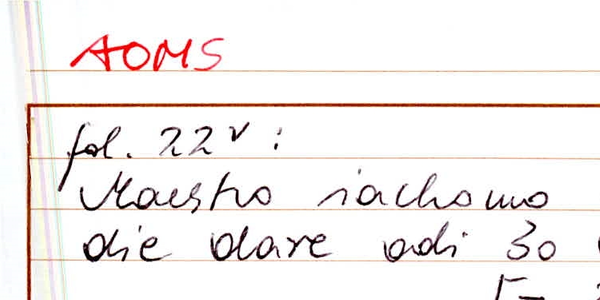 AOMS
fol. 22v:
Maestro iachomo
die dare adi 30